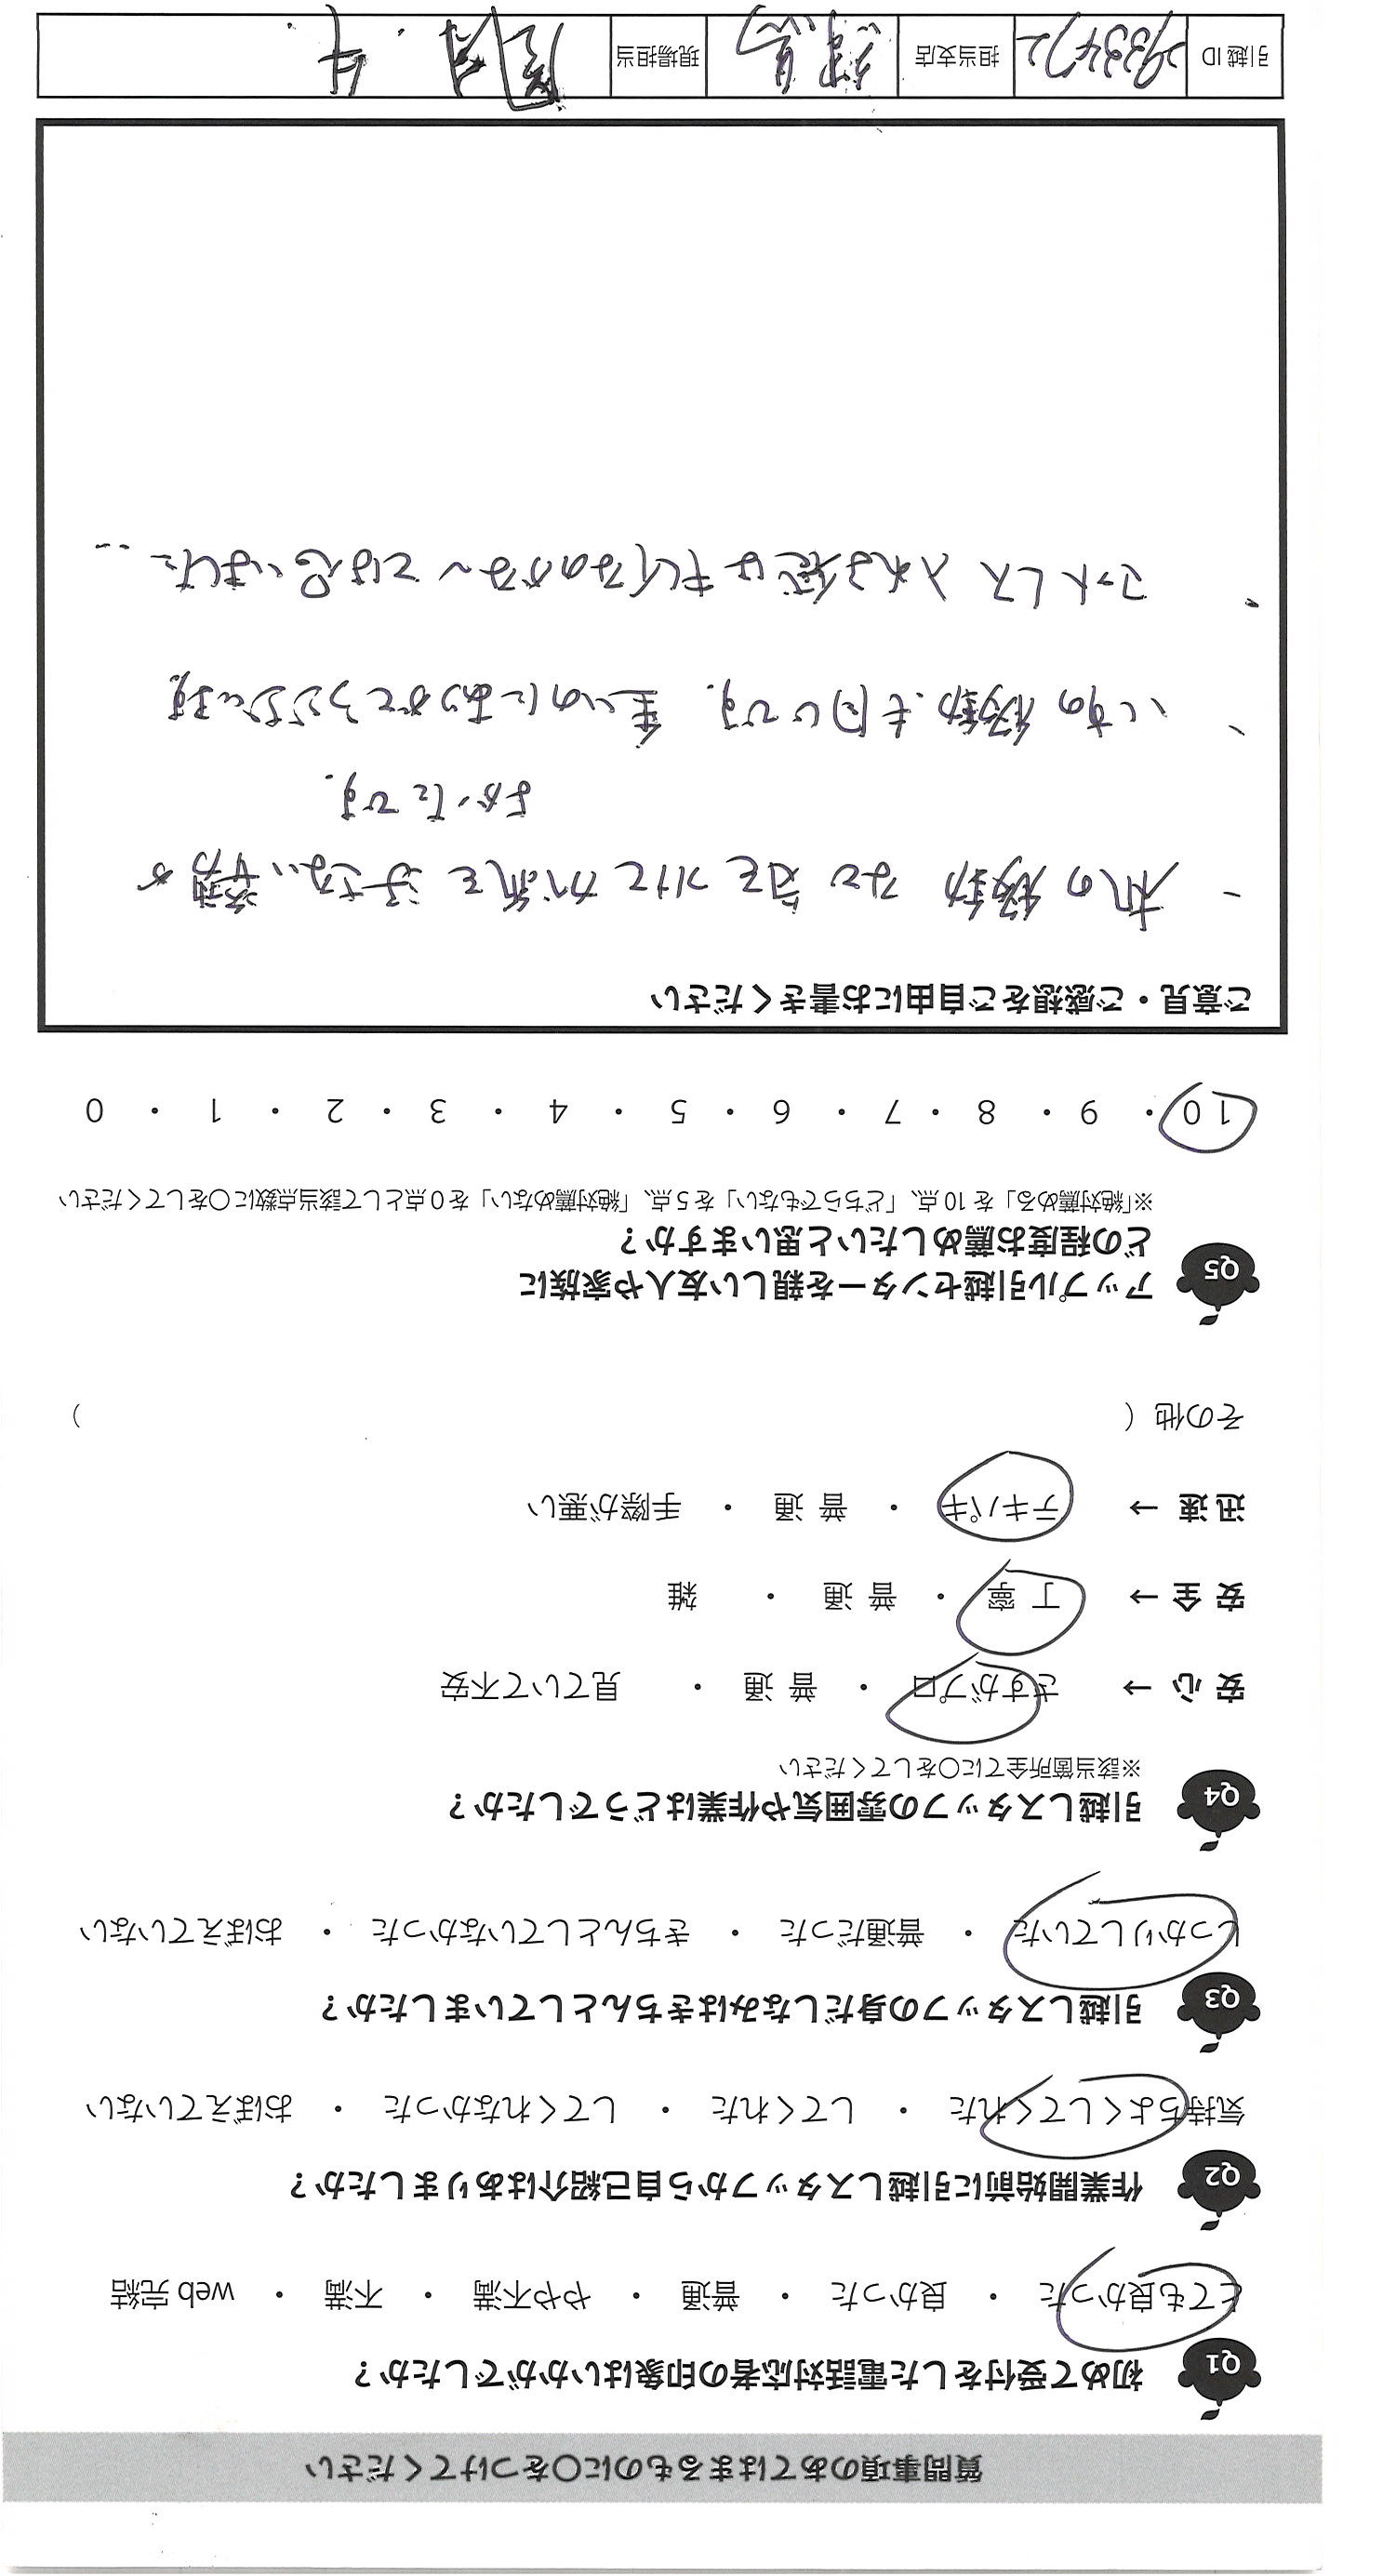 質問事項のあてはまるものに〇をつけてください
Q1 初めて受付をした電話対応者の印象はいかがでしたか?
とても良かった ・ 良かった ・ 普通 ・ やや不満 ・ 不満 ・ web 完結
Q2 作業開始前に引越しスタッフから自己紹介はありましたか?
気持ちよくしてくれた ・ してくれた ・ してくれなかった ・ おぼえていない
Q3 引越しスタッフの身だしなみはきちんとしていましたか?
しっかりしていた ・ 普通だった ・ きちんとしていなかった ・ おぼえていない
Q4 引越しスタッフの雰囲気や作業はどうでしたか?
※該当箇所全てに〇をしてください
安 心 → さすがプロ ・ 普 通 ・ 見ていて不安
安 全 → 丁 寧 ・ 普 通 ・ 雑
迅 速 → テキパキ ・ 普 通 ・ 手際が悪い
その他 ( )
Q5 アップル引越センターを親しい友人や家族に
どの程度お薦めしたいと思いますか?
※「絶対薦める」を 10 点、「どちらでもない」を 5 点、「絶対薦めない」を 0 点として該当点数に〇をしてください
10 ・ 9 ・ 8 ・ 7 ・ 6 ・ 5 ・ 4 ・ 3 ・ 2 ・ 1 ・ 0
ご意見・ご感想をご自由にお書きください
・ 机の移動 など 気を つけて が
よかったです。
・ いすの移動も同じです。重いのにありがとうございます
・ マットレス 入れる袋は キレイなのかな〜 とは思いました…
引越 ID 担当支店 練馬 現場担当